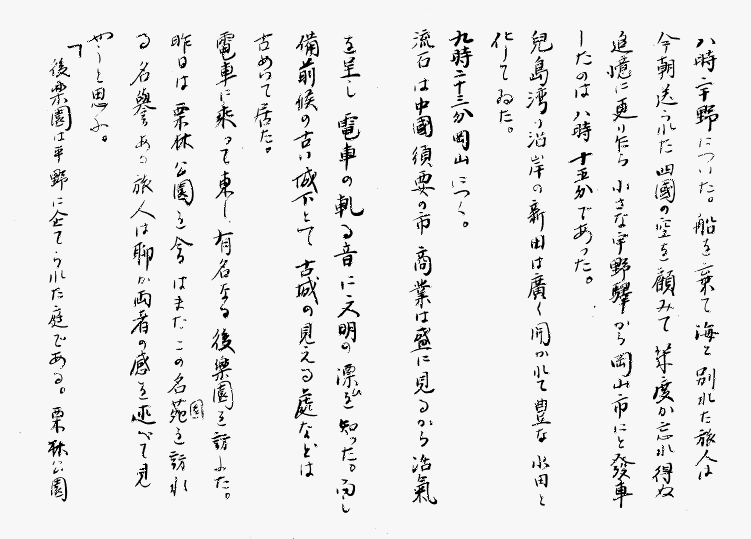 八時宇野についた。船を棄て海と別れた旅人は
今朝送られた四國の空を顧みて幾度か忘れ得ぬ
追憶に更り乍ら小さな宇野驛から岡山市にと發車
したのは八時十五分であった。
兒島湾の沿岸の新田は廣く開かれて豊な水田と
化してゐた。
九時二十三分岡山につく。
流石は中國須要の市商業は盛に見るから活氣
を呈し電車の軋る音に文明の漂ひを知った。而し
備前候の古い城下とて古城の見える處などは
古めいて居た。
電車に乘って東し有名なる後樂園を訪ふた。
昨日は栗林公園を今はまたこの名苑を訪れ
園
る名譽あり旅人は聊か両者の感を述べて見
やうと思ふ。
「後樂園は平野に企てられた庭である。栗林公園